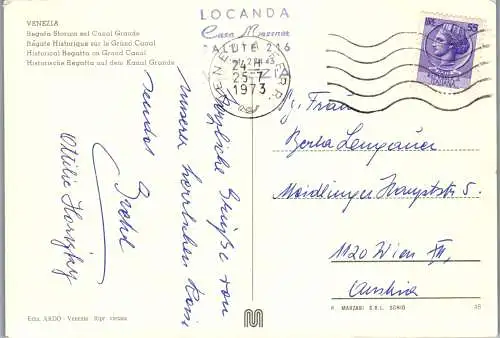 VENEZIA
Regata Storica sul Canal Grande
Régate Historique sur le Grand Canal
Historical Regatta on Grand Canal
Historische Regatta auf dem Kanal Grande
LOCANDA
Casa
SALUTE 216
VENEZIA FERR.
24-H
25-7
1973
LIRE 55
Herzliche Grüße von
unserer herrlichen Reise
sendet
Ottilie
Frau
Berta Lengauer
Meidlinger Hauptstr 5.
1120 Wien XII,
Austria
Ediz. ARDO - Venezia Ripr. vietata
P. MARZARI S.R.L. SCHIO